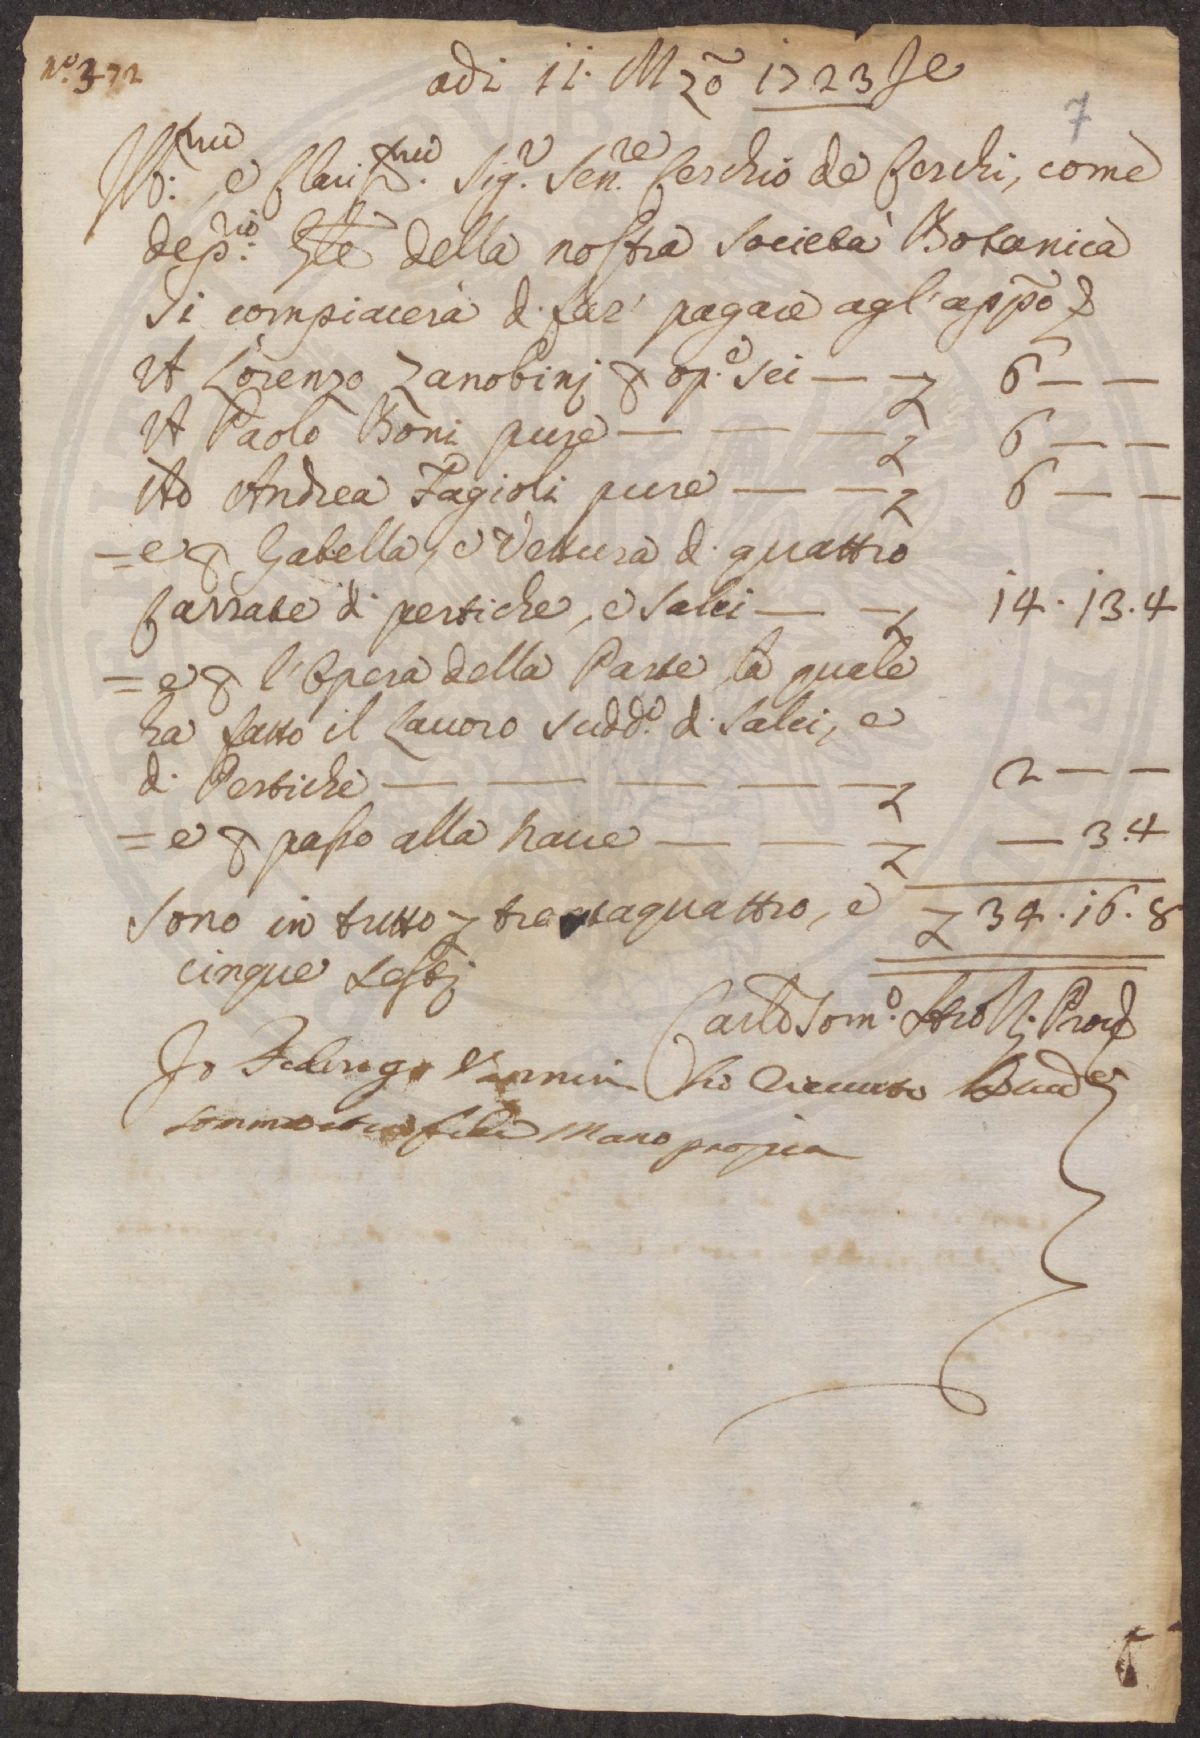 N.º 372
adi 11. Mzõ 1723 Je
7
Ill:mo, e Clariss.mo Sig.r Sen.re Cerchio de Cerchi, come
dep.rio Gle della nostra Società Botanica
Si compiacerà d. far' pagare agl'appõ
A Lorenzo Zanobinj & op.e Sei — — 6 — —
A Paolo Boni pure — — — 6 — —
Ad Andrea Fagioli pure — — 6 — —
= e & Gabella, e Vettura d. quattro
carrate di pertiche, e Salci — — 14. 13. 4
= e & l'Opera della Parte la quale
ha fatto il Lauoro sudd.º d. Salci, e
d. Pertiche — — — — — 2 — —
= e & passo alla Naue — — — — 3. 4
Sono in tutto trentaquattro, e 34. 16. 8
cinque Sestj
Carlo Tom.º Strozzj: Prou
Io Federigo Vannini ho riceuto
mano propria